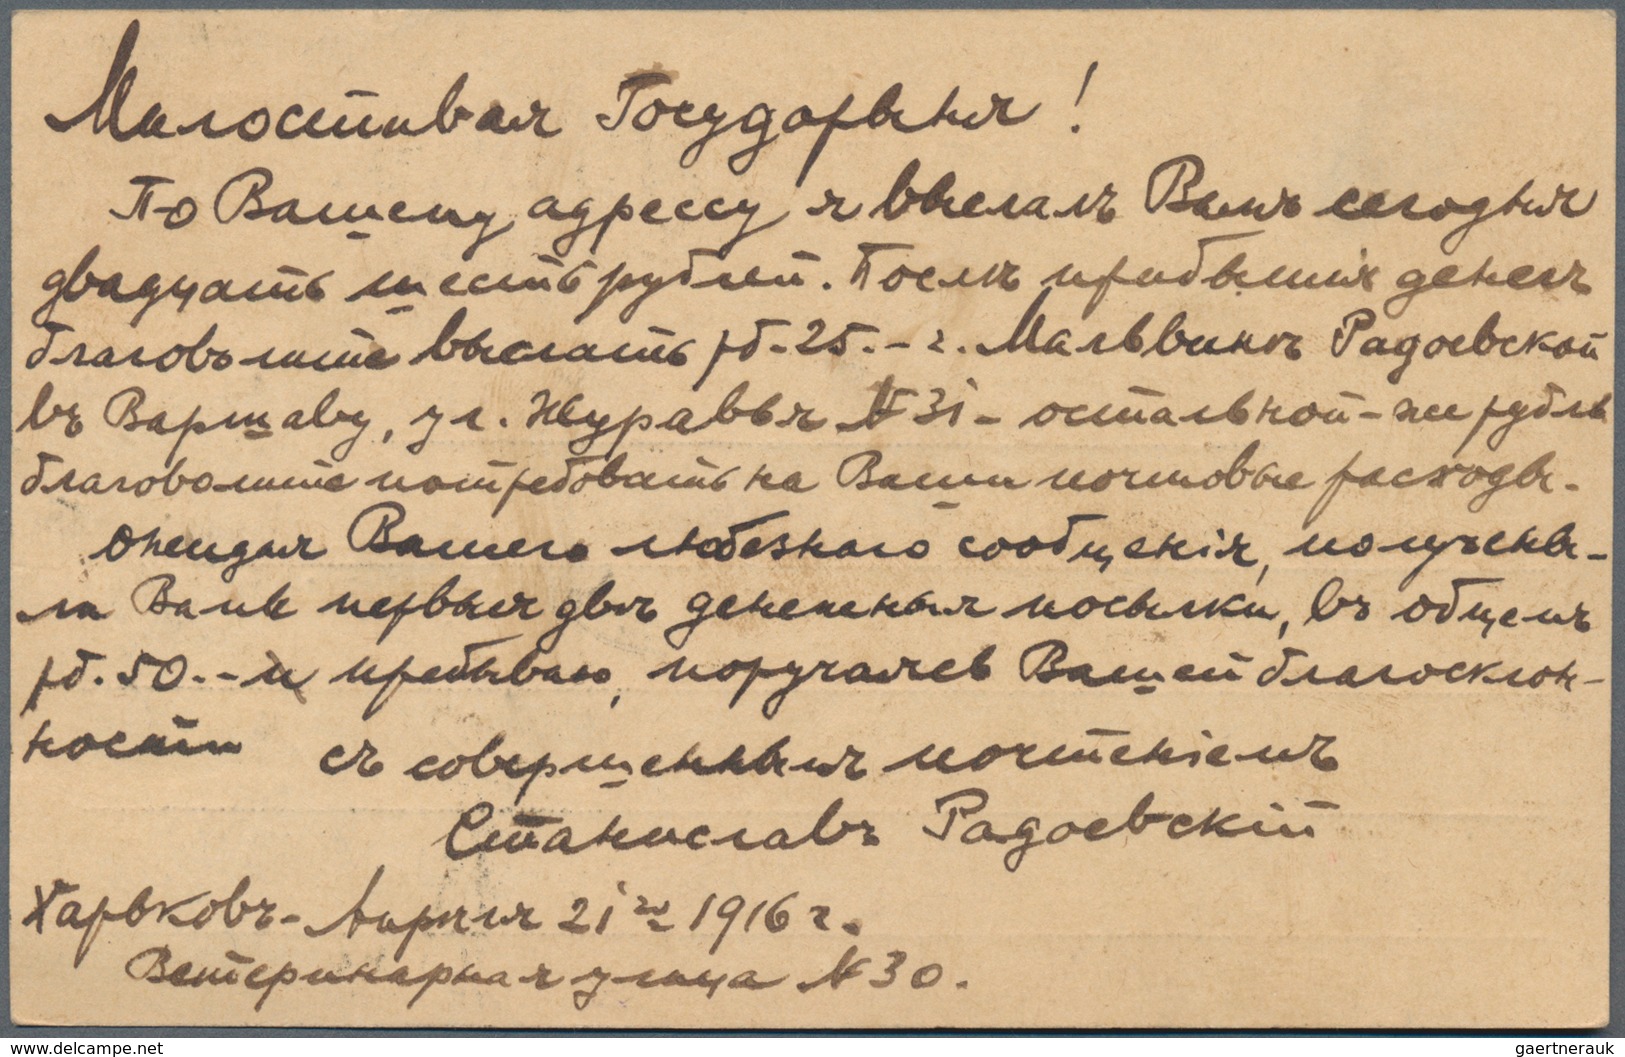 Милостивая Государыня!
По Вашему адрессу я выслалъ Вамъ сегодня
двадцать шесть рублей. Послѣ прибытія денегъ
благоволите выслать рб. 25.- г. Мальвинѣ Радоевской
въ Варшаву, ул. Журавья № 31 - остальной-же рубль
благоволите потребовать на Ваши почтовые расходы.
Ожидая Вашего любезнаго сообщенія, получены-
ли Вами первыя двѣ денежныя посылки, въ общемъ
рб. 50.-- пребываю, поручаясь Вашей благосклон-
ности
съ совершеннымъ почтеніемъ
Станиславъ Радоевскій
Харьковъ - Апрѣля 21го 1916 г.
Ветеринарная улица № 30.
www.delcampe.net
gaertnerauk